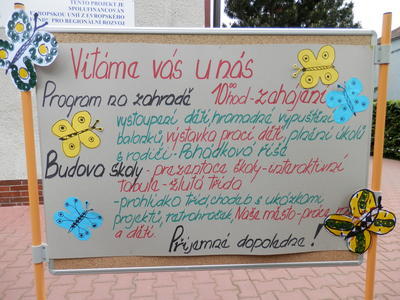 TENTO PROJEKT JE
SPOLUFINANCOVÁN
EVROPSKOU UNIÍ Z EVROPSKÉHO
PRO REGIONÁLNÍ ROZVOJ
Vítáme vás u nás
Program na zahradě 10⁰⁰hod-zahájení
vystoupení dětí, hromadné vypuštění
balonků, výstavka prací dětí, plnění úkolů
s rodiči - Pohádková říše
Budova školy - prezentace školy-interaktivní
tabule - žlutá třída
-prohlídka tříd, chodeb s ukázkami
projektů, retrohraček, Naše město - práce
a dětí.
Příjemné dopoledne!